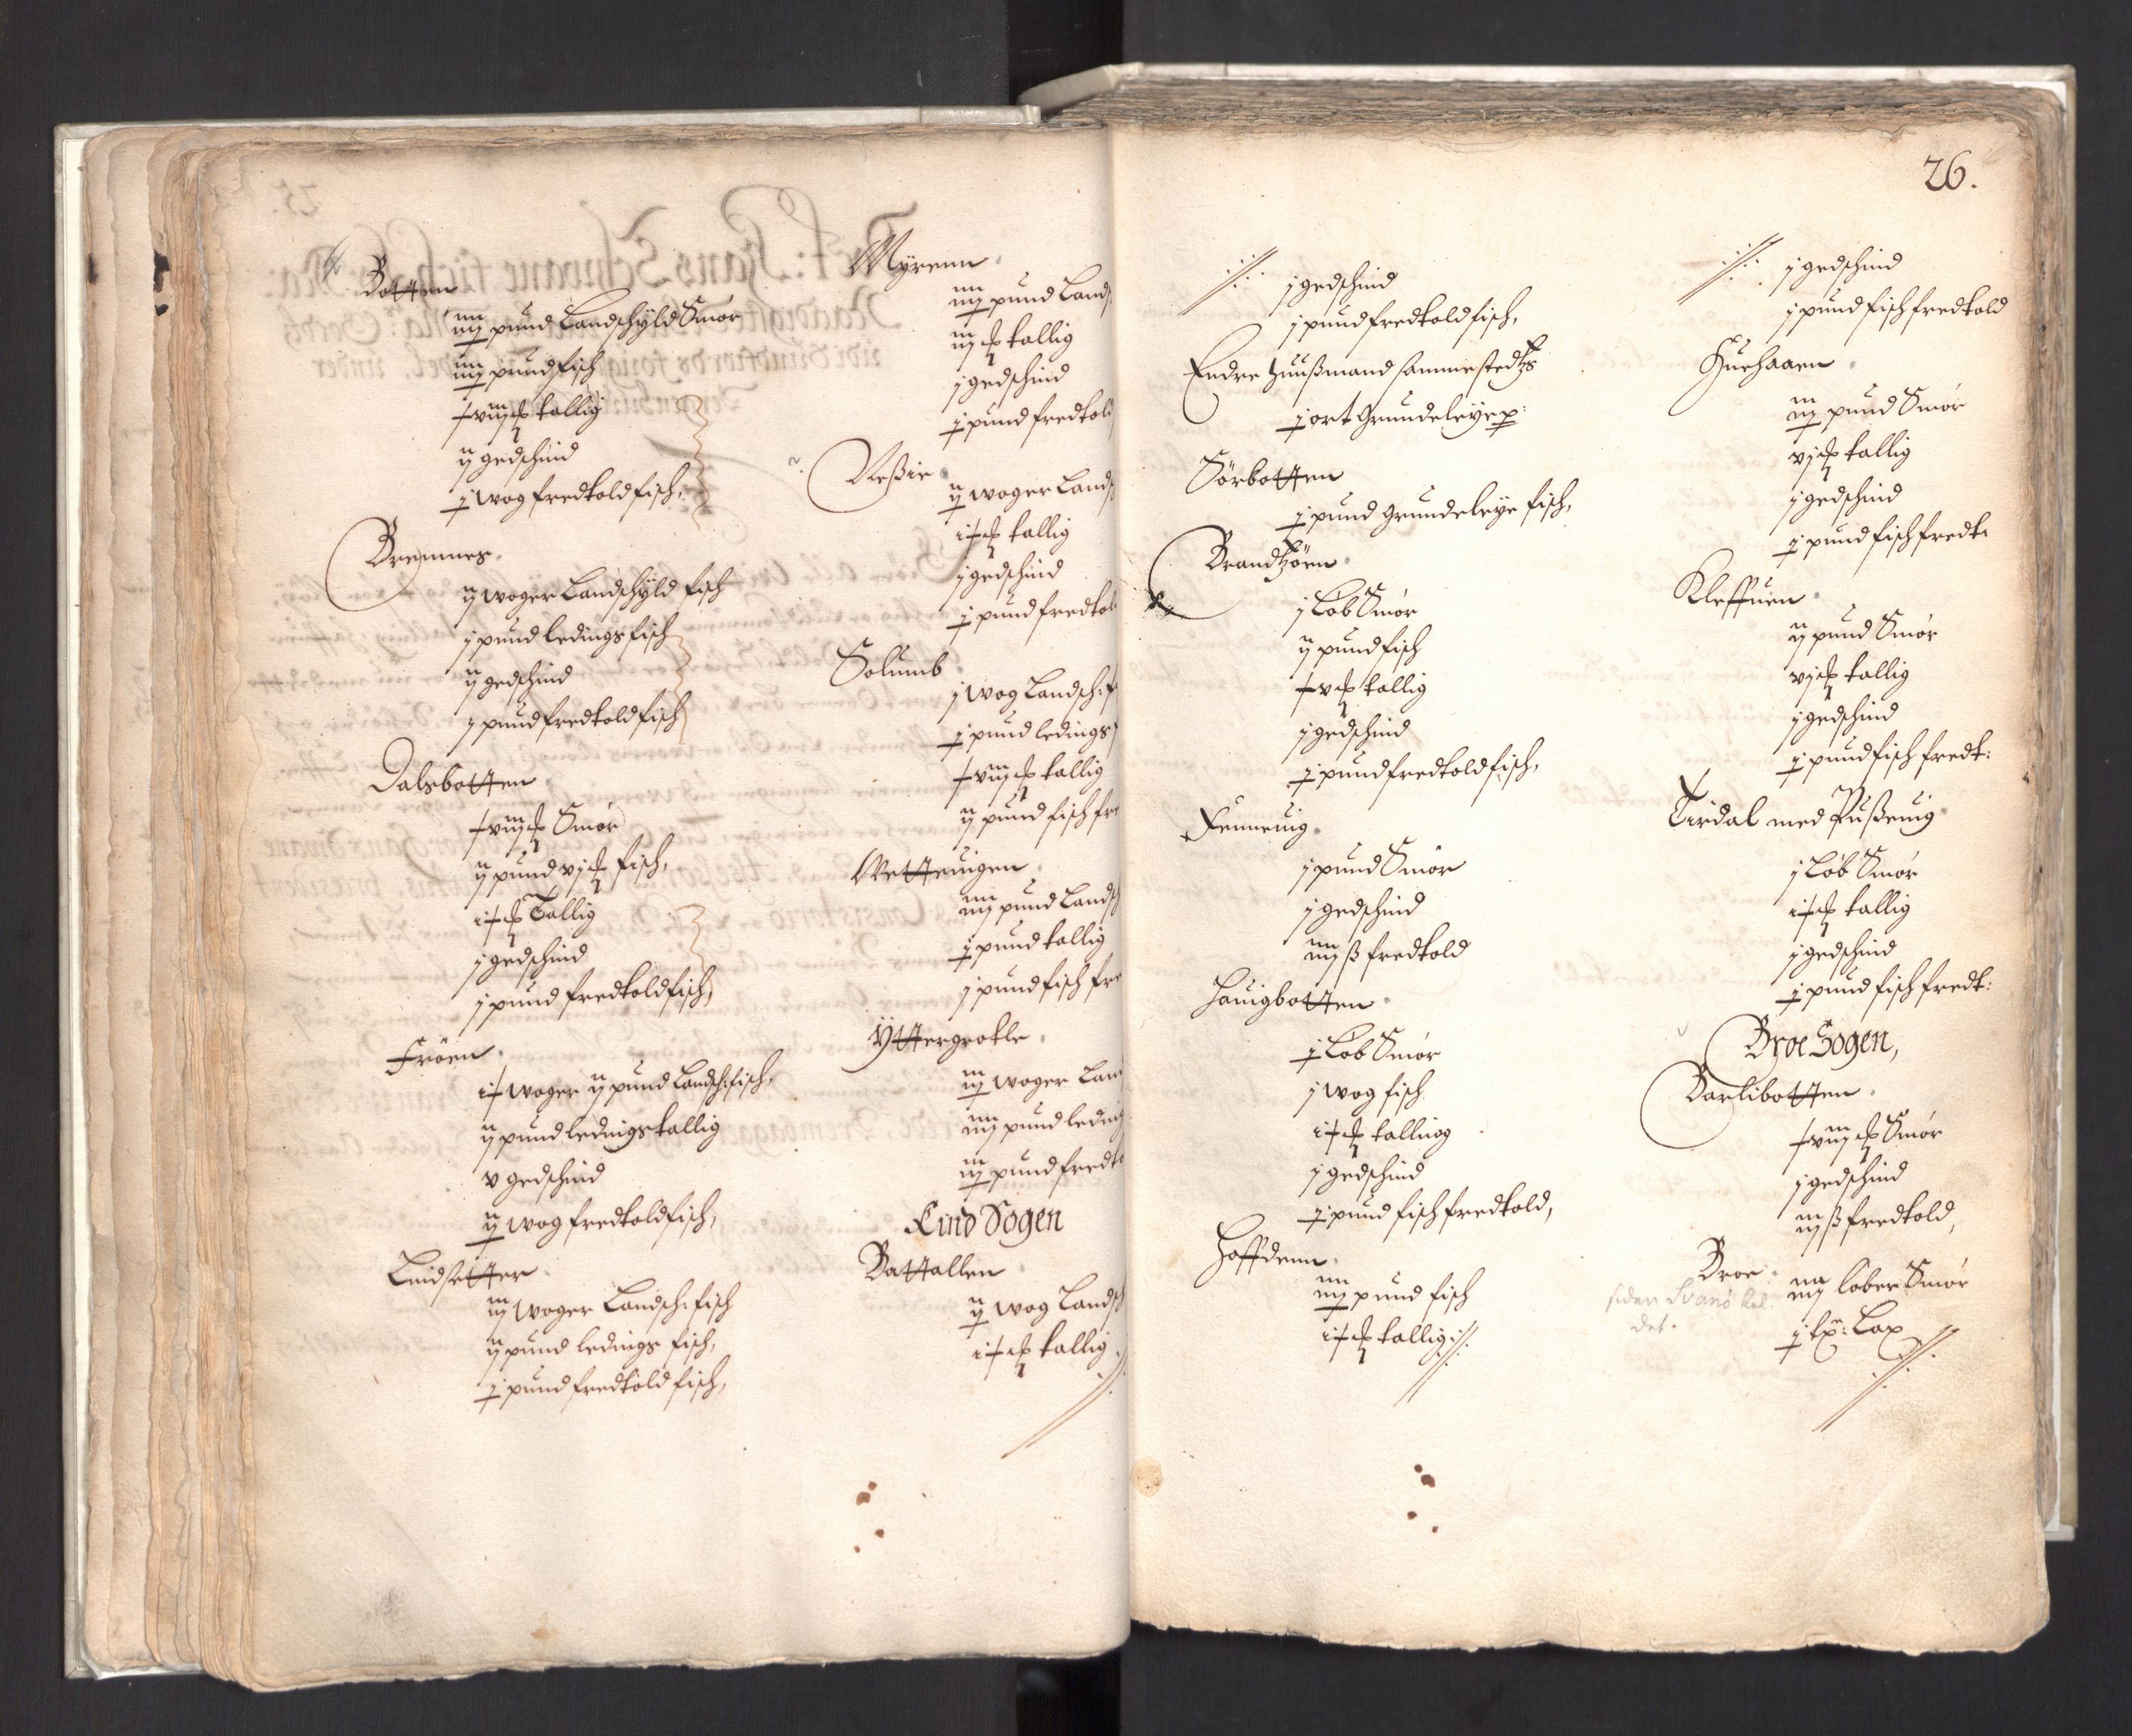 Botten
iiij pund Landschyld Smör
iiij pund fisch
viij kallig
ij gedschind
j wog fredtold fisch,
Bremnes.
ij woger Landschyld fisch
j pund ledings fisch
ij gedschind
j pund fredtold fisch
Dalsbotten
viij Smör
ij pund vj fisch,
kallig
j gedschind
j pund fredtold fisch,
Fröen.
woger ij pund Landsch: fisch,
ij pund ledings kallig
v gedschind
ij wog fredtold fisch,
Lindsetter.
iij woger Landsch: fisch
ij pund ledings fisch,
j pund fredtold fisch,
Myrenn.
iiij pund Lands
iij kallig
j gedschind
j pund fredtold
Neßie
ij woger Lands
kallig
j gedschind
j pund fredtol
Solumb
j wog Landsch: f
j pund ledings f
viij kallig
ij pund fisch fre
Wetteuigen
iiij pund Landsch
j pund kallig
j pund fisch fre
Yttergrotle.
iij woger Lan
iiij pund leding
iij pund fredto
Eind Sogen
Battallen
ij wog Landsch
kallig ://:
26.
://: j gedschind
j pund fredtold fisch,
Endre Huußmand sammestedtzs
j ort Grundeleye p:
Sörbotten
j pund Grundeleye fisch,
Brandtzörn.
j Löb Smör
ij pund fisch
v kallig
j gedschind
j pund fredtold fisch,
Femneuig.
j pund Smör
j gedschind
iiij ß fredtold
Hauigbotten.
j Löb Smör
j wog fisch
kalliug
j gedschind
j pund fisch fredtold,
Hoffdenn.
iiij pund fisch
kallig ://:
://: j gedschind
j pund fisch fredtold
Huehaarn.
iij pund Smör
vj kallig
j gedschind
j pund fisch fredt:
Kleffuen
ij pund Smör
vj kallig
j gedschind
j pund fisch fredt:
Tirdal med Pußeuig
j Löb Smör
kallig
j gedschind
j pund fisch fredt:
Broe Sogen,
Barlibotten.
viij Smör
j gedschind
iij ß fredtold,
Broe.
iiij löber Smör
siden Svanö kal
det.
j tz: Lax
://: